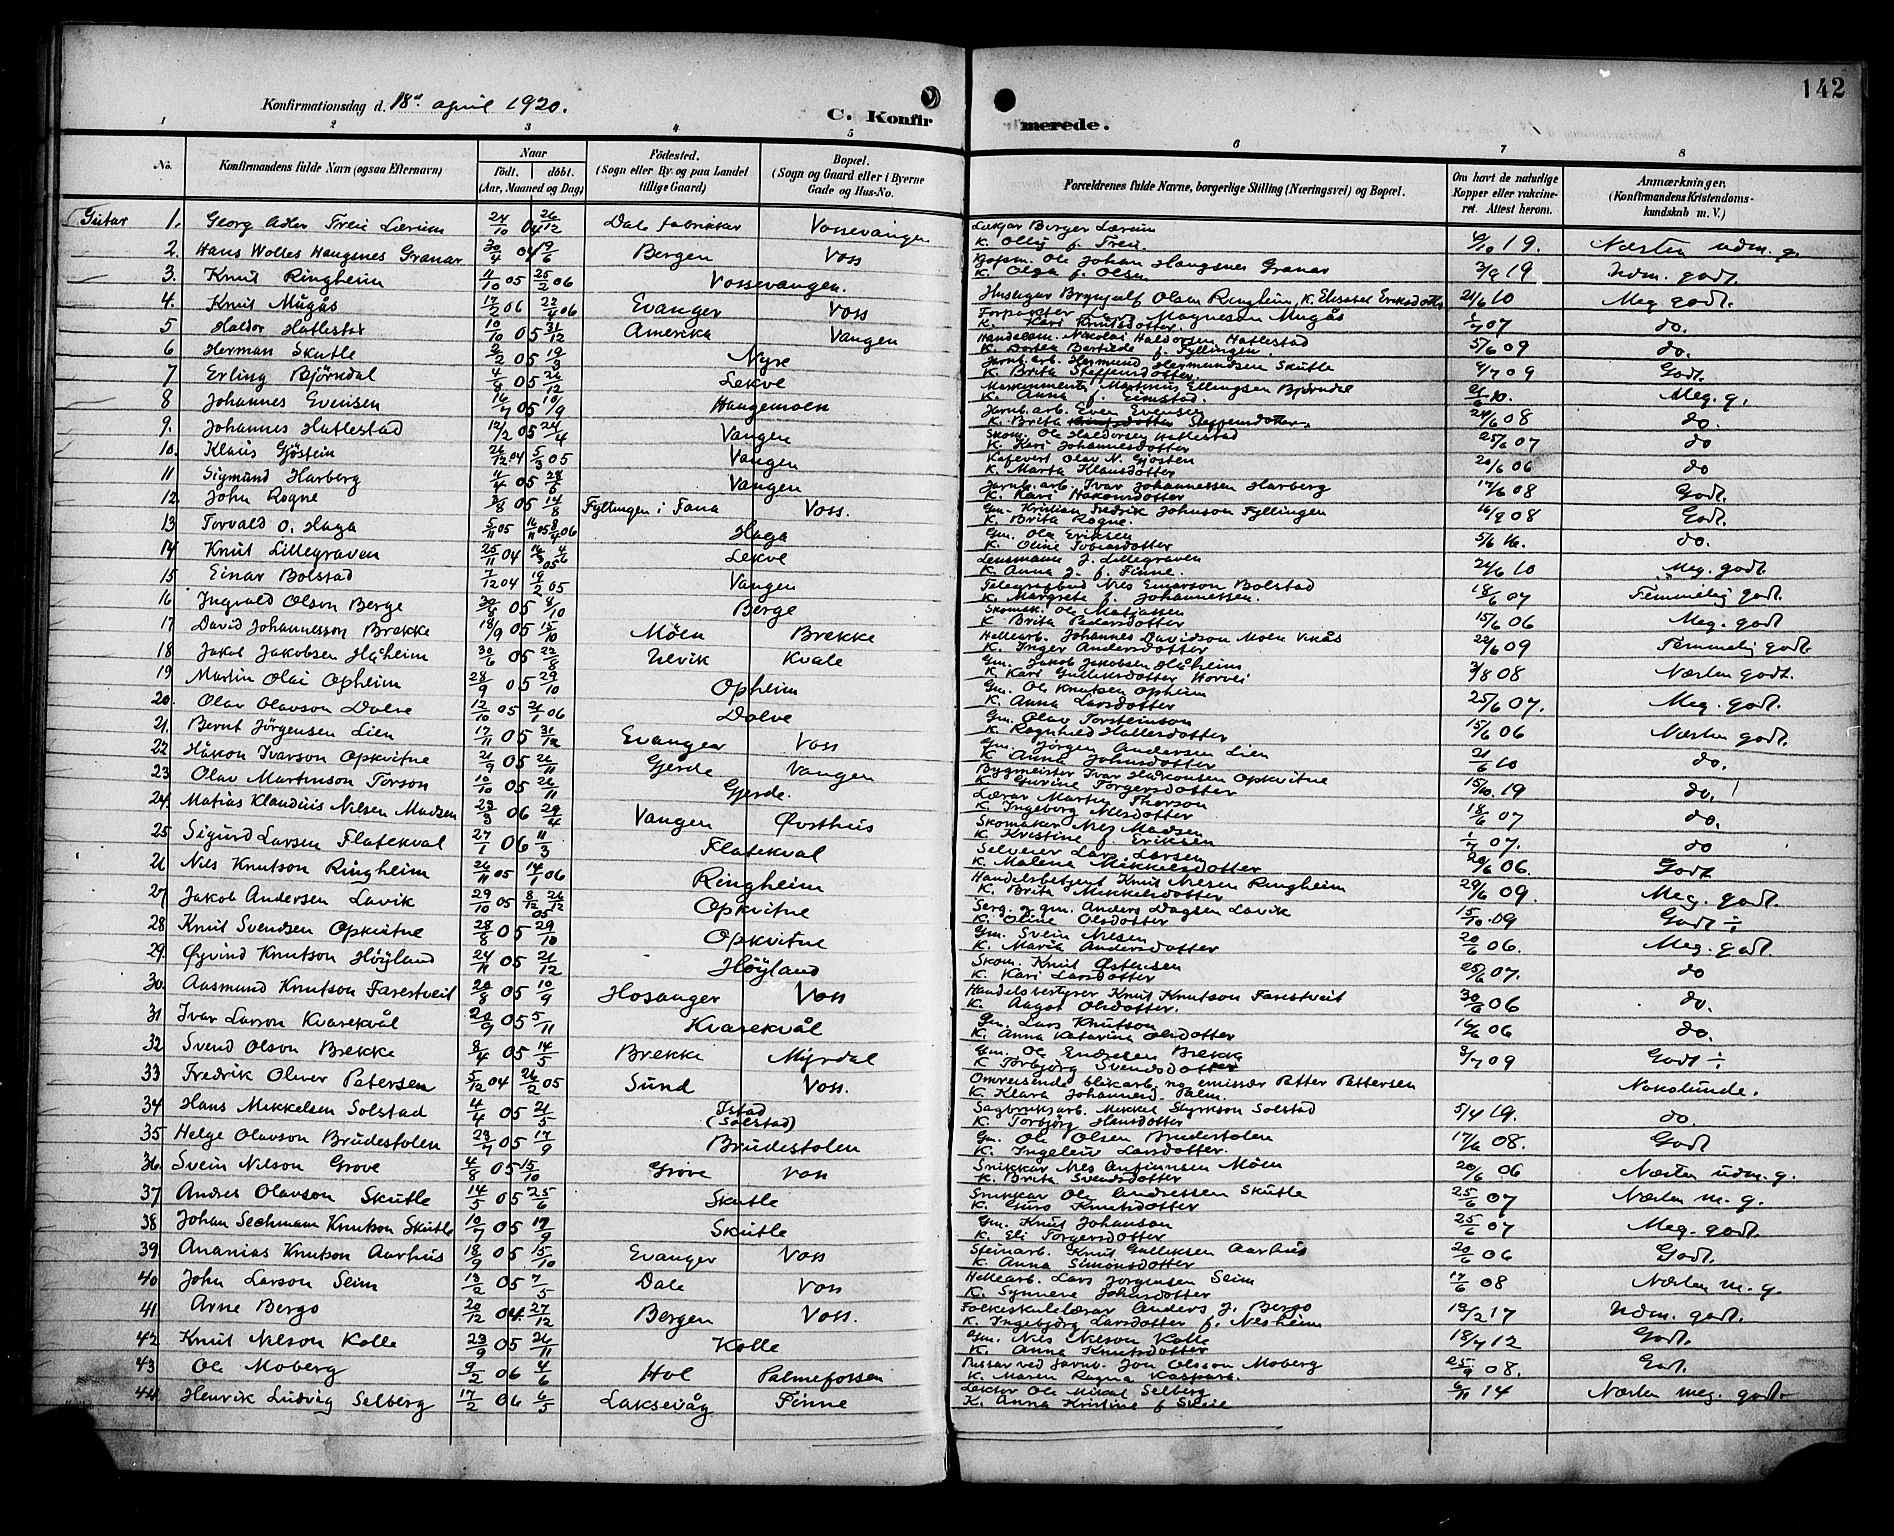 142
Konfirmationsdag d. 18de april 1920.
C. Konfirmerede.
1 2 3 4 5 6 7 8
No. Konfirmandens fulde Navn (ogsaa Efternavn) Naar født. døbt. (Aar, Maaned og Dag) Fødested. (Sogn eller By og paa Landet tillige Gaard) Bopæl. (Sogn og Gaard eller i Byerne Gade og Hus-No. Forældrenes fulde Navne, borgerlige Stilling (Næringsvei) og Bopæl. Om havt de naturlige Kopper eller vaccineret. Attest herom. Anmærkninger. (Konfirmandens Kristendomskundskab m. V.)
Gutar 1. Georg Adler Frei Lærum 24/10 04 26/12 Dale fabrikker Vossevangen Børger Lærum K. Olly f. Frei. 6/10 19. Næsten udm. g.
2. Hans Woltes Haugsnes Granar 30/4 04 19/6 Bergen Voss Ole Johan Haugsnes Granar K. Olga f. Olsen 3/9 19 Udm. godt.
3. Knut Ringheim 11/10 05 25/2 06 Vossevangen. Husegar Brynjulf Olsen Ringheim, K. Elisabet Eriksdotter 21/6 10 Meg godt.
4. Knut Mugås 17/2 06 22/4 06 Evanger Voss Forpakter Lars Magnesen Mugås K. Kari Knutsdotter. 1/7 07 do.
5 Haldor Hatlestad 10/10 05 31/12 Amerika Vangen Handelsm. Nikolai Haldorsen Hatlestad K. Dortea Bertilde f. Fyllingen. 5/6 09 do.
6 Herman Skutle 2/2 05 19/3 Nyre Jarnb. arb. Hermund Hermundsen Skutle K. Brita Steffensdotter. 4/7 09 Godt.
7 Erling Bjørndal 4/8 05 26/12 Lekve Martinus Ellingsen Bjørndal K. Anna f. Eimstad. 21/6 10. Meg. g.
8 Johannes Evensen 16/7 05 10/9 Haugamoen Jarnb. arb. Even Evensen K. Brita Steffensdotter. 24/6 08 do.
9. Johannes Hatlestad 12/2 05 24/4 Vangen Skom. Ole Haldorsen Hatlestad K. Kari Johannesdotter 25/6 07 do
10. Klaus Gjøstein 26/12 04 5/3 05 Vangen Kafevert Olav N. Gjøstein K. Marta Klausdotter 20/6 06 do
11 Sigmund Harberg 11/4 05 28/5 Vangen Jarnb. arb. Ivar Johannessen Harberg K. Kari Hakonsdotter 17/6 08 Godt.
12. John Rogne 3/8 05 14/8 Fyllingen i Fana Voss. Gm. Kristian Fredrik Johnson Fyllingen K. Brita Rogne. 16/9 08 Godt.
13 Torvald O. Haga 5/11 05 16/11 05 8/4 06 Haga Gm. Ole Eriksen K. Oline Tobiasdotter 5/6 16. do.
14 Knut Lillegraven 25/11 04 16/3 05 4/6 Lekve Lensmann J. Lillegraven K. Anna J. f. Finne. 24/6 10 Meg. godt
15 Einar Bolstad 7/12 04 19/2 05 Vangen Telegrafbud Nils Einarson Bolstad K. Margrete f. Johannessen. 18/6 07 Temmelig godt.
16 Ingvald Olson Berge 30/8 05 8/10 Berge Skomak. Ole Matiassen K. Brita Pedersdotter 15/6 06 Meg. godt
17. David Johannesson Brekke 18/9 05 15/10 Møen Brekke Hellearb. Johannes Davidson Moen Vikås K. Inger Andersdotter 22/6 09 Temmelig godt.
18 Jakob Jakobsen Håheim 30/6 05 22/8 Ulvik Kvale Gm. Jakob Jakobsen Håheim K. Kari Gulleiksdotter Horvei 3/8 08 Næsten godt.
19 Martin Olai Opheim 28/9 05 29/10 Opheim Gm. Ole Knutsen Opheim K. Anna Larsdotter 25/6 07. Meg. godt.
20. Olav Olavson Dolve 12/10 05 21/1 06 Dolve Gm. Olav Torsteinson K. Ragnhild Hallesdotter 15/6 06 Næsten godt.
21. Bernt Jörgensen Lien 17/11 05 31/12 Evanger Voss Gm. Jörgen Andersen Lien K. Anna Johnsdotter 21/6 10 do.
22 Håkon Ivarson Opkvitne 21/9 05 26/11 Gjerde Vangen Bygmeister Ivar Haakonsen Opkvitne K. Gurine Torgersdotter 15/10. 19 do.
23 Olav Martinson Torson 10/10 05 26/11 Gjerde. Lærar Martin Thorson K. Ingeborg Nilsdotter 18/6 07 do.
24. Matias Klaudius Nilsen Madsen 23/3 06 29/4 Vangen Øvsthus Skomaker Nils Madsen K. Kristine f. Eriksen 1/7 07. do
25 Sigurd Larsen Flatekval 27/1 06 11/3 Flatekval Selveier Lars Larsen K. Malena Mikkelsdotter 20/6 06. Godt
26 Nils Knutson Ringheim 26/11 05 14/1 06 Ringheim Handelsbetjent Knut Nilsen Ringheim K. Brita Mikkelsdotter 29/6 09. Meg. godt.
27 Jakob Andersen Lavik 29/10 05 8/12 26/12 05 Opkvitne Serg. og gm. Anders Dagsen Lavik K. Oline Olsdotter 15/10. 09 Godt ÷
28 Knut Svendsen Opkvitne 28/8 05 29/10 Opkvitne Gm. Svein Nilsen K. Marta Andersdotter 20/6 06. Meg. godt.
29. Øyvind Knutson Höyland 24/11 05 21/12 Höyland Skom. Knut Østensen K. Kari Larsdotter 25/6 07. do
30. Aasmund Knutson Farestveit 20/8 05 10/9 Hosanger Voss Handelsbestyrer Knut Knutson Farestveit K. Aagot Olsdotter. 30/6 06 do.
31 Ivar Larson Kvarekvål 20/9 05 5/11 Kvarekvål Gm. Lars Knutson K. Anna Katarina Olsdotter 16/6 06 do.
32 Svend Olson Brekke 8/4 05 14/5 Brekke Myrdal Gm. Ole Endresen Brekke K Torbjörg Svendsdotter 3/7 09 Godt ÷
33 Fredrik Oliver Petersen 5/12 04 26/2 05 Sund Voss. Omreisende blikarb. og emissær Petter Pettersen K. Klara Johannesd. Palm. Nokolunde.
34 Hans Mikkelsen Solstad 4/4 05 21/5 Istad (Solstad) Sagbruksarb. Mikkel Styrkson Solstad K. Torbjörg Hansdotter 5/4 19. do.
35 Helge Olavson Brudestolen 23/7 05 17/9 Brudestolen Gm. Ole Olsen Brudestolen K. Ingeleiv Larsdotter. 17/6 08. Godt
36. Svein Nilson Grove 4/8 05 15/10 Grove Voss Snikkar Nils Anfinnsen Möen K. Brita Svendsdotter 20/6 06 Næsten udm. g.
37 Andres Olavson Skutle 14/5 05 25/6 Skutle Snikkar Ole Andressen Skutle K. Guro Knutsdotter 25/6 07 Næsten m. g.
38 Johan Sechmann Knutson Skutle 10/7 05 17/9 Skutle Gm. Knut Johanson K. Eli Torgersdotter 25/6 07 Meg. godt
39 Ananias Knutson Aarhus 18/9 05 15/10 Evanger Voss Steinarb. Knut Gulleksen Aarhus K. Anna Simonsdotter 20/6 06 Godt.
40 John Larson Seim 13/2 05 7/5 Dale Voss Hellearb. Lars Jörgensen Seim K. Synneve Johnsdotter 17/6 08 Næsten m. g.
41 Arne Bergo 20/12 04. 27/12 Bergen Voss. Folkeskulelærar Anders J. Bergo K. Ingebjörg Larsdotter f. Nesheim 13/2 17 Udm. godt.
42 Knut Nilson Kolle 23/9 05 26/11 Kolle Gm. Nils Nilson Kolle K. Anna Knutsdotter 18/7 12 Godt.
43 Ole Moberg 9/2 06 4/6 Hol Palmefossen Pussar ved Jarnb. Jon Olsson Moberg K. Maren Ragna Kaspara. 25/9 08. Godt.
44 Henrik Ludvig Selberg 17/2 06 6/5 Laksevåg Finne Lektor Ole Mikal Selberg K. Anna Kristine f Sveie 6/11 14 Næsten meg. godt